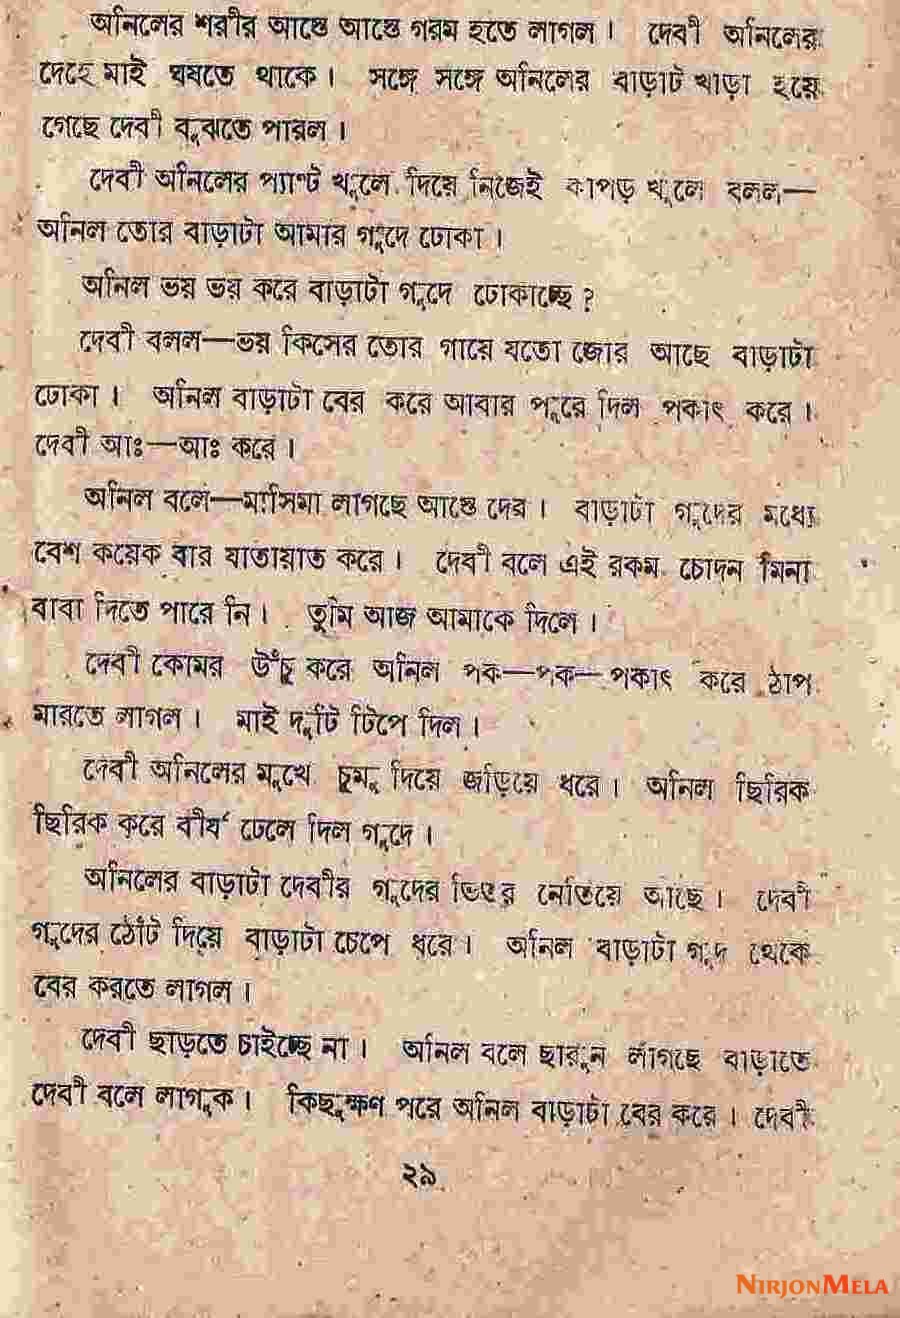 অনিলের শরীর আস্তে আস্তে গরম হতে লাগল। দেবী অনিলের
দেহে মাই ঘষতে থাকে। সঙ্গে সঙ্গে অনিলের বাড়াট খাড়া হয়ে
গেছে দেবী বুঝতে পারল।
দেবী অনিলের প্যাণ্ট খুলে দিয়ে নিজেই কাপড় খুলে বলল—
অনিল তোর বাড়াটা আমার গুদে ঢোকা।
অনিল ভয় ভয় করে বাড়াটা গুদে ঢোকাচ্ছে?
দেবী বলল—ভয় কিসের তোর গায়ে যতো জোর আছে বাড়াটা
ঢোকা। অনিল বাড়াটা বের করে আবার পুরে দিল পকাৎ করে।
দেবী আঃ—আঃ করে।
অনিল বলে—মাসিমা লাগছে আস্তে দেব। বাড়াটা গুদের মধ্যে
বেশ কয়েক বার যাতায়াত করে। দেবী বলে এই রকম চোদন মিনা
বাবা দিতে পারে নি। তুমি আজ আমাকে দিলে।
দেবী কোমর উঁচু করে অনিল পক—পক—পকাৎ করে ঠাপ
মারতে লাগল। মাই দুটি টিপে দিল।
দেবী অনিলের মুখে চুমু দিয়ে জড়িয়ে ধরে। অনিল ছিরিক
ছিরিক করে বীর্য ঢেলে দিল গুদে।
অনিলের বাড়াটা দেবীর গুদের ভিতর নেতিয়ে আছে। দেবী
গুদের ঠোঁট দিয়ে বাড়াটা চেপে ধরে। অনিল বাড়াটা গুদ থেকে
বের করতে লাগল।
দেবী ছাড়তে চাইচ্ছে না। অনিল বলে ছারুন লাগছে বাড়াতে
দেবী বলে লাগুক। কিছুক্ষণ পরে অনিল বাড়াটা বের করে। দেবী
২৯
NIRJONMELA